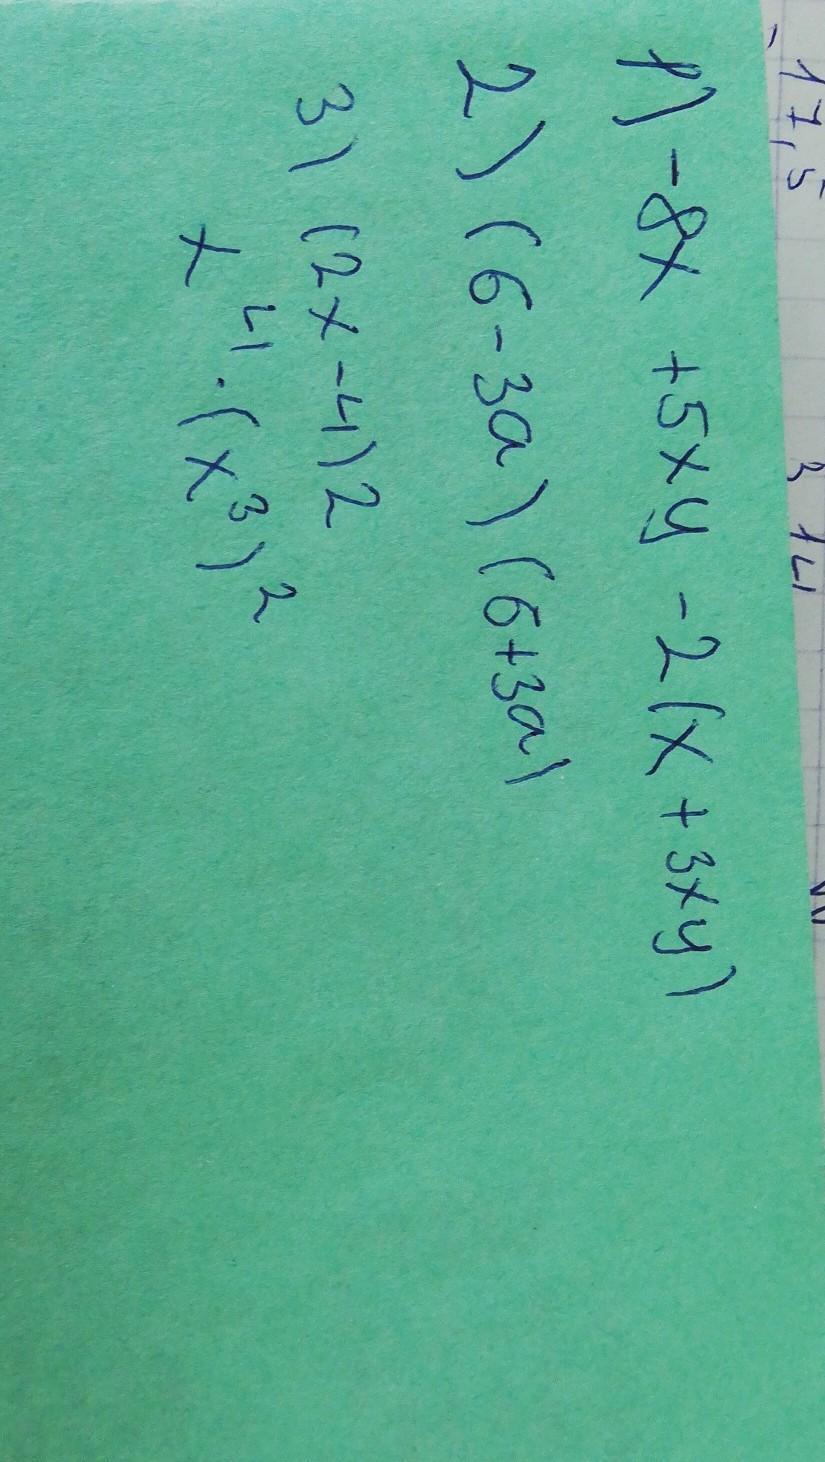 -17,5 3 14
1) -8x +5xy -2(x +3xy)
2) (6-3a)(6+3a)
3) (2x-4)2
x⁴·(x³)²